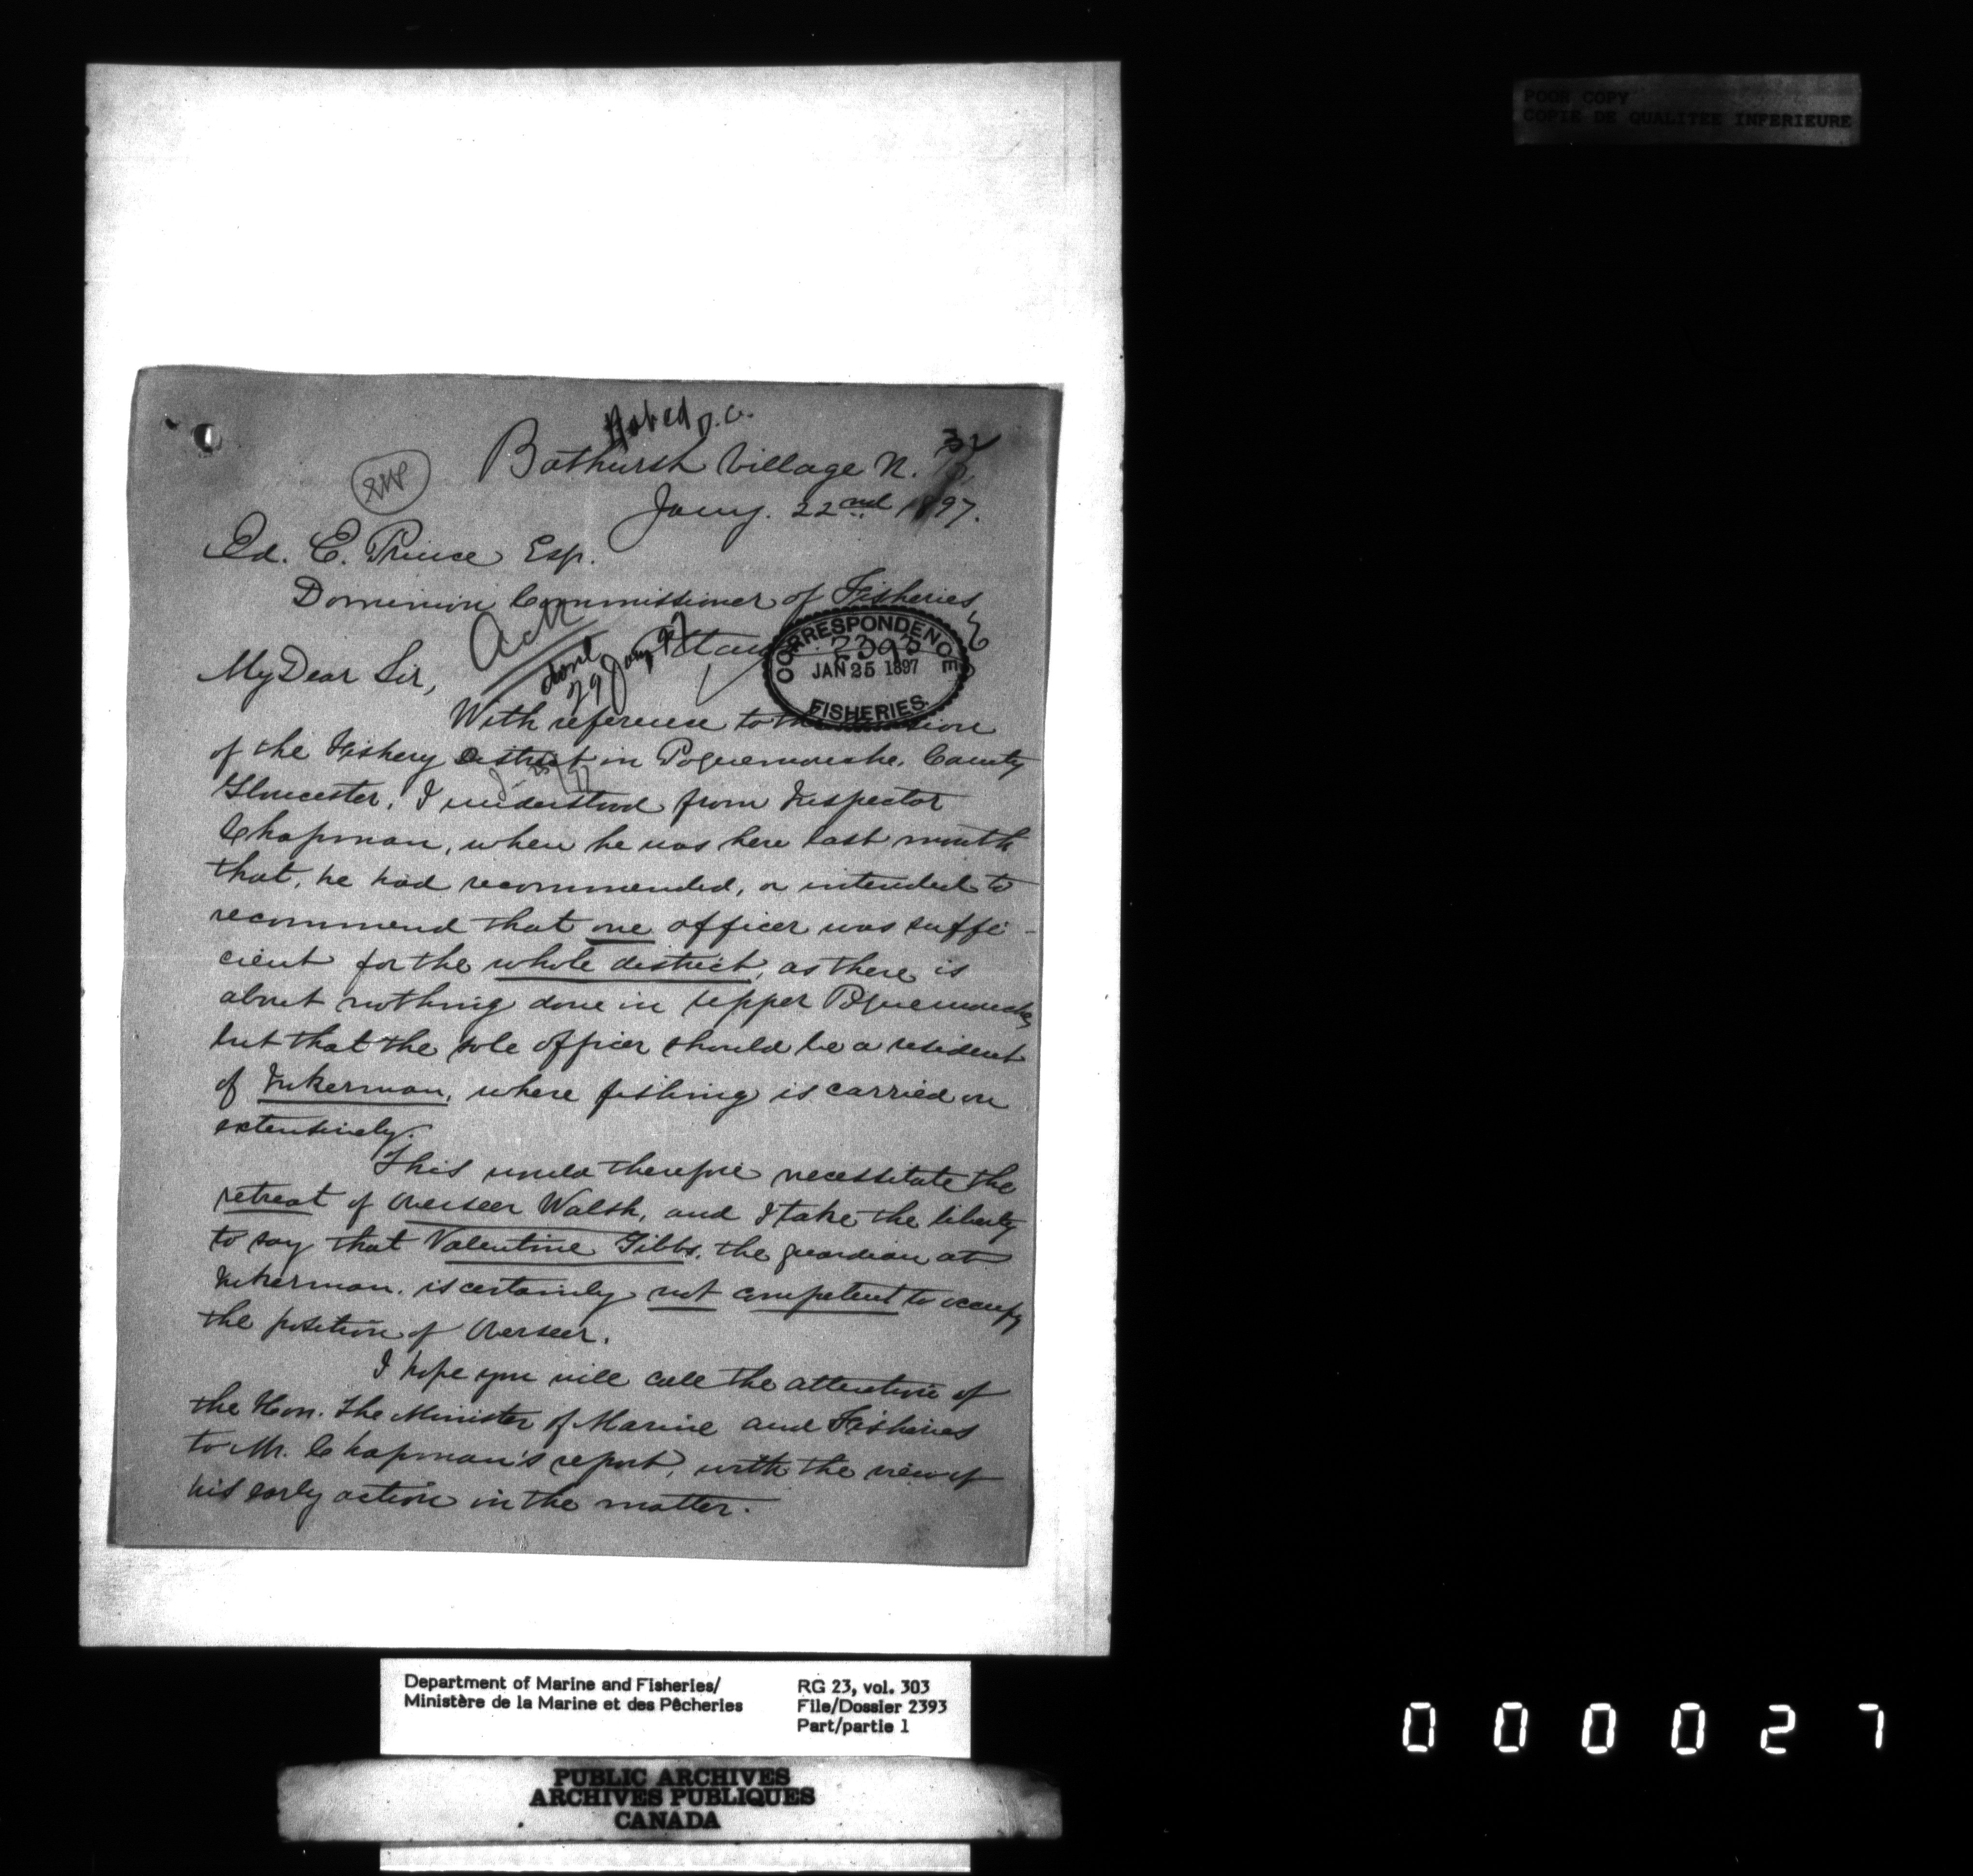 POOR COPY
COPIE DE QUALITEE INFERIEURE
Noted
32
Bathurst Village N. B.
Jany. 22nd 1897.
Ed. E. Prince Esq.
Dominion Commissioner of Fisheries,
Ack
done
29 Jany 97
CORRESPONDENCE
2393
JAN 25 1897
FISHERIES
My Dear Sir,
With reference to the
of the Fishery District in Poquemouche, County
Gloucester, I understood from Inspector
Chapman, when he was here last month
that, he had recommended, or intended to
recommend that one officer was suffi-
cient for the whole district, as there is
about nothing done in upper Poquemouche,
but that the sole officer should be a resident
of Inkerman, where fishing is carried on
extensively.
This would therefore necessitate the
retreat of Overseer Walsh, and I take the liberty
to say that Valentine Gibbs, the guardian at
Inkerman, is certainly not competent to occupy
the position of Overseer.
I hope you will call the attention of
the Hon. the Minister of Marine and Fisheries
to Mr. Chapman's report, with the view of
his early action in the matter.
Department of Marine and Fisheries/
Ministère de la Marine et des Pêcheries
RG 23, vol. 303
File/Dossier 2393
Part/partie 1
PUBLIC ARCHIVES
ARCHIVES PUBLIQUES
CANADA
000027